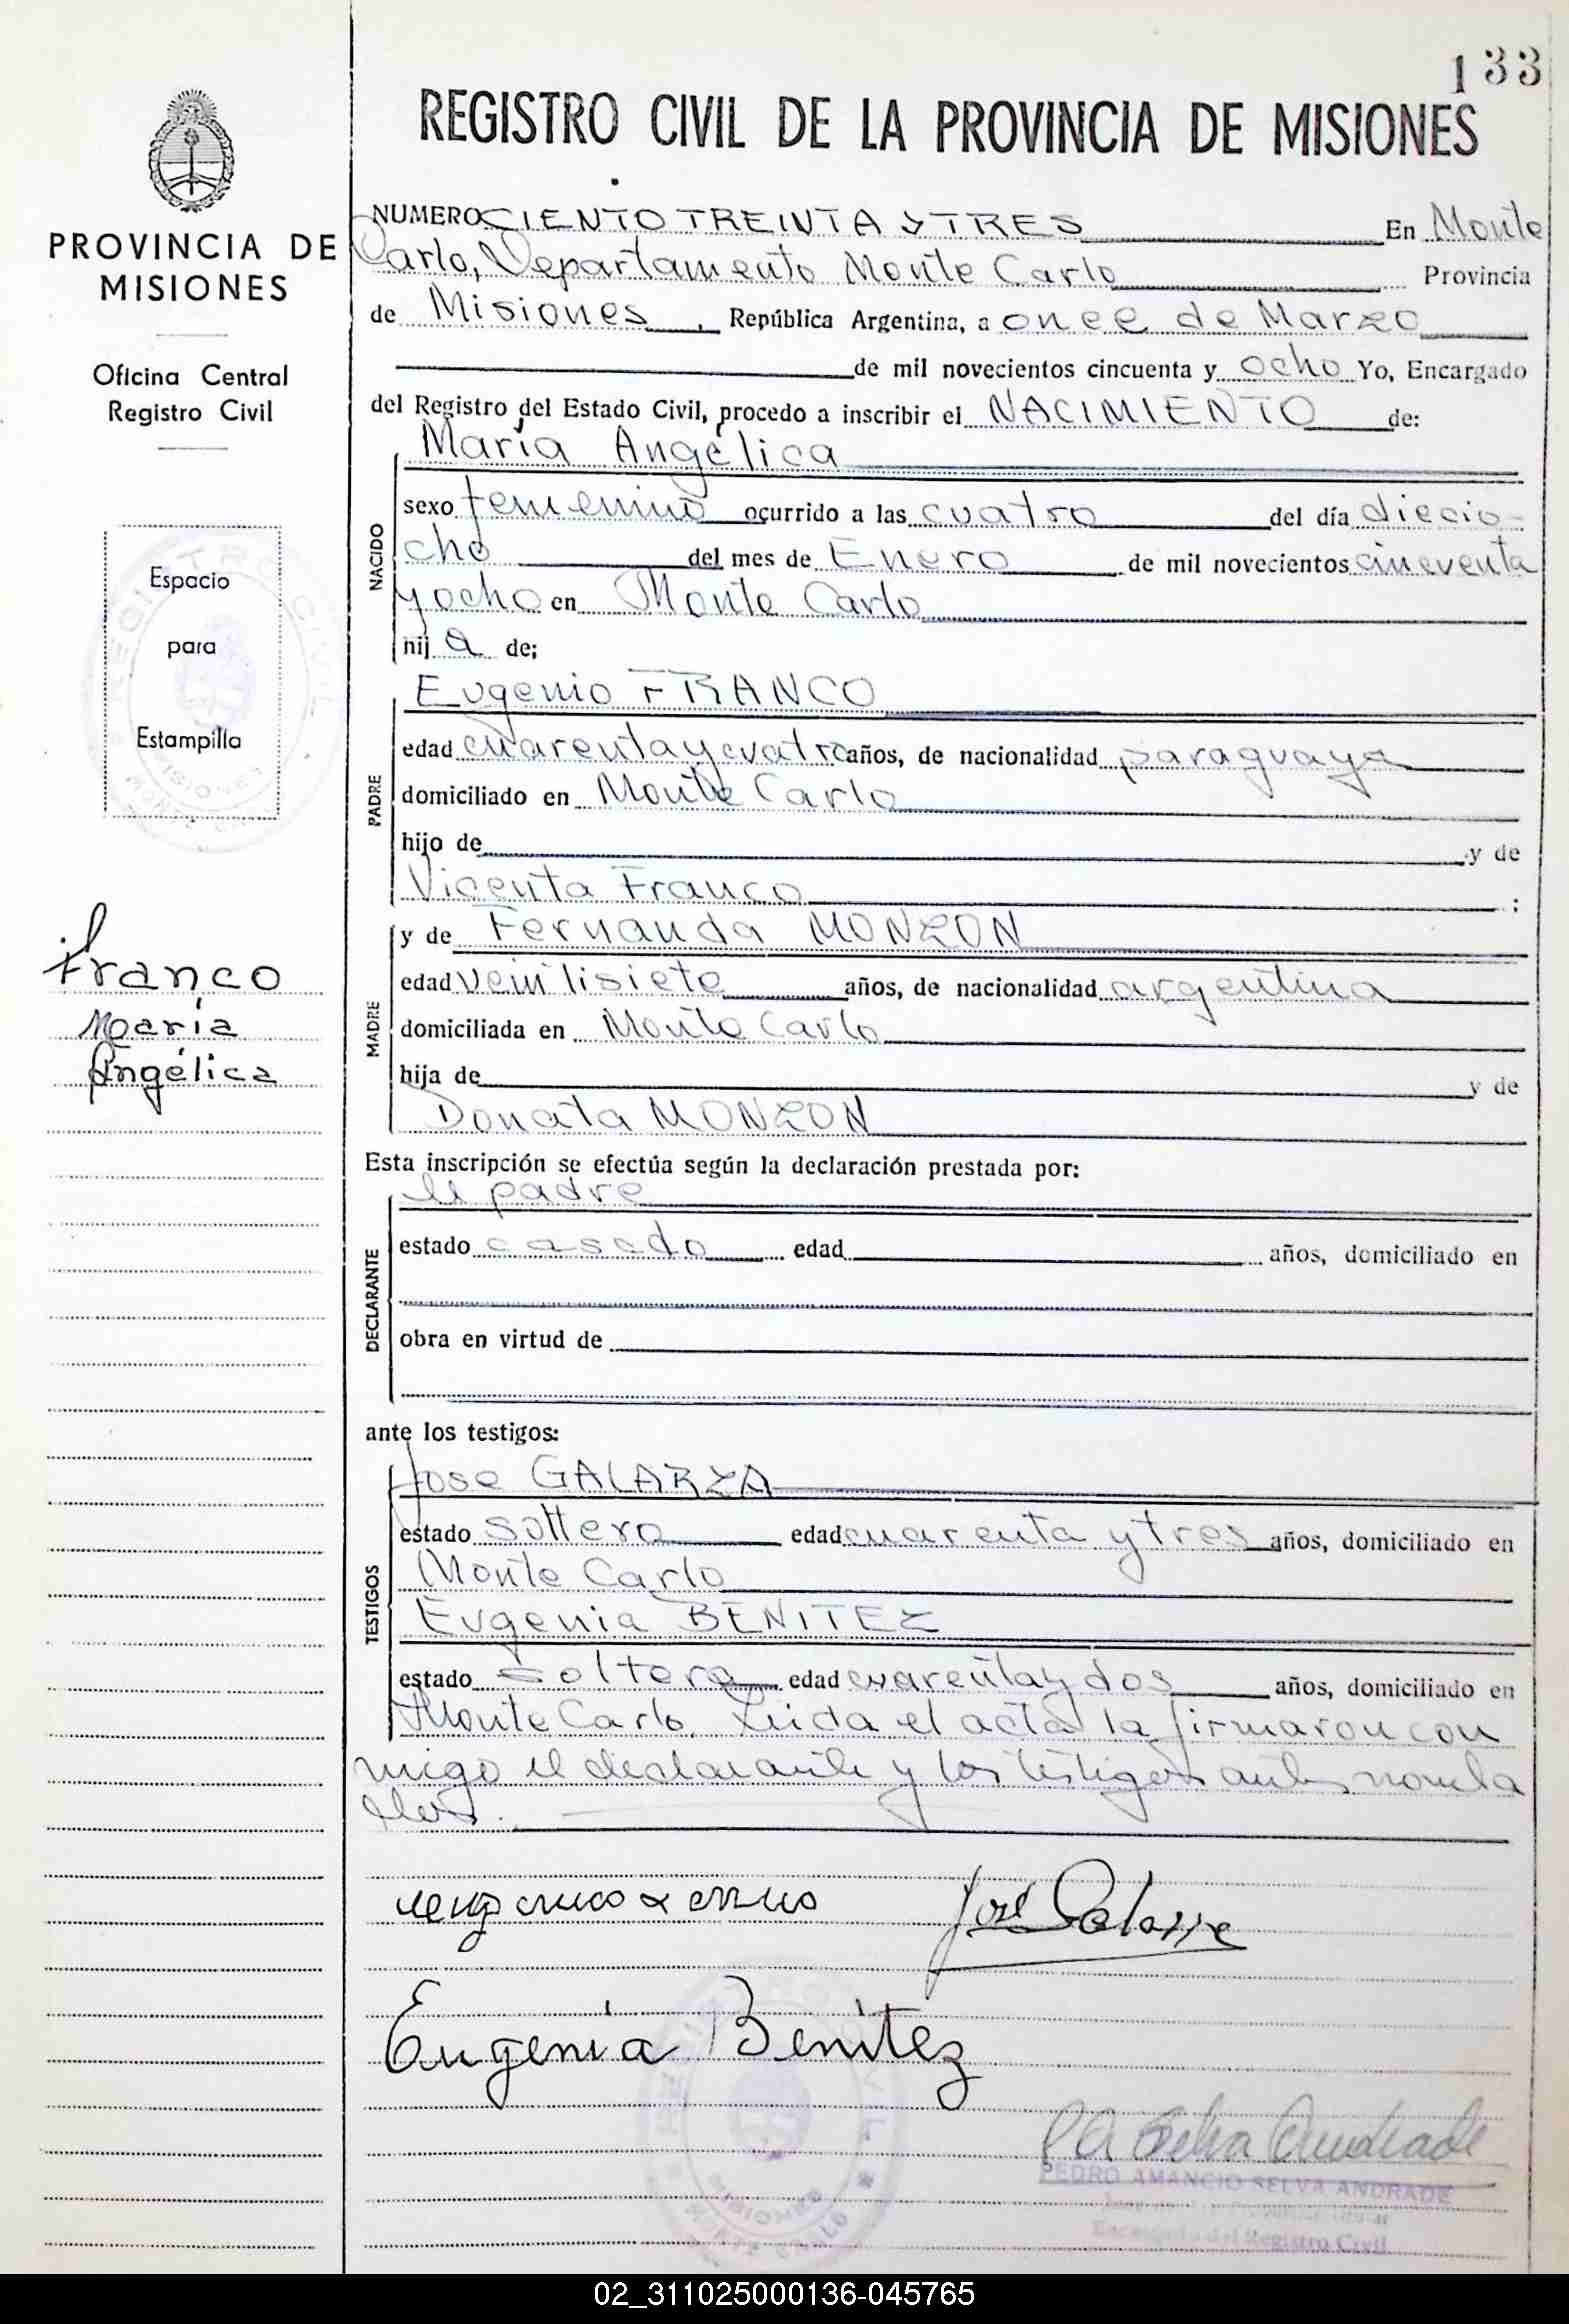 133
REGISTRO CIVIL DE LA PROVINCIA DE MISIONES
PROVINCIA DE
MISIONES
Oficina Central
Registro Civil
Espacio
para
Estampilla
Franco
María
Angélica
NUMERO CIENTO TREINTA y TRES En Monte
Carlo, Departamento Monte Carlo Provincia
de Misiones, República Argentina, a once de Marzo
de mil novecientos cincuenta y ocho Yo, Encargado
del Registro del Estado Civil, procedo a inscribir el NACIMIENTO de:
NACIDO
María Angélica
sexo femenino ocurrido a las cuatro del día diecio-
cho del mes de Enero de mil novecientos cincuenta
y ocho en Monte Carlo
hij a de;
PADRE
Eugenio FRANCO
edad cuarenta y cuatro años, de nacionalidad paraguaya
domiciliado en Monte Carlo
hijo de y de
Vicenta Franco ;
MADRE
y de Fernanda MONZON
edad veintisiete años, de nacionalidad argentina
domiciliada en Monte Carlo
hija de y de
Donata MONZON
Esta inscripción se efectúa según la declaración prestada por:
DECLARANTE
el padre
estado casado edad años, domiciliado en
obra en virtud de
ante los testigos:
TESTIGOS
Jose GALARZA
estado soltero edad cuarenta y tres años, domiciliado en
Monte Carlo
Eugenia BENITEZ
estado soltera edad cuarenta y dos años, domiciliado en
Monte Carlo. Leida el acta la firmaron con
migo el declarante y los testigos antes nombra
dos.
José Galarza
Eugenia Benitez
P A Selva Andrade
PEDRO AMANCIO SELVA ANDRADE
Encargado del Registro Civil
02_311025000136-045765